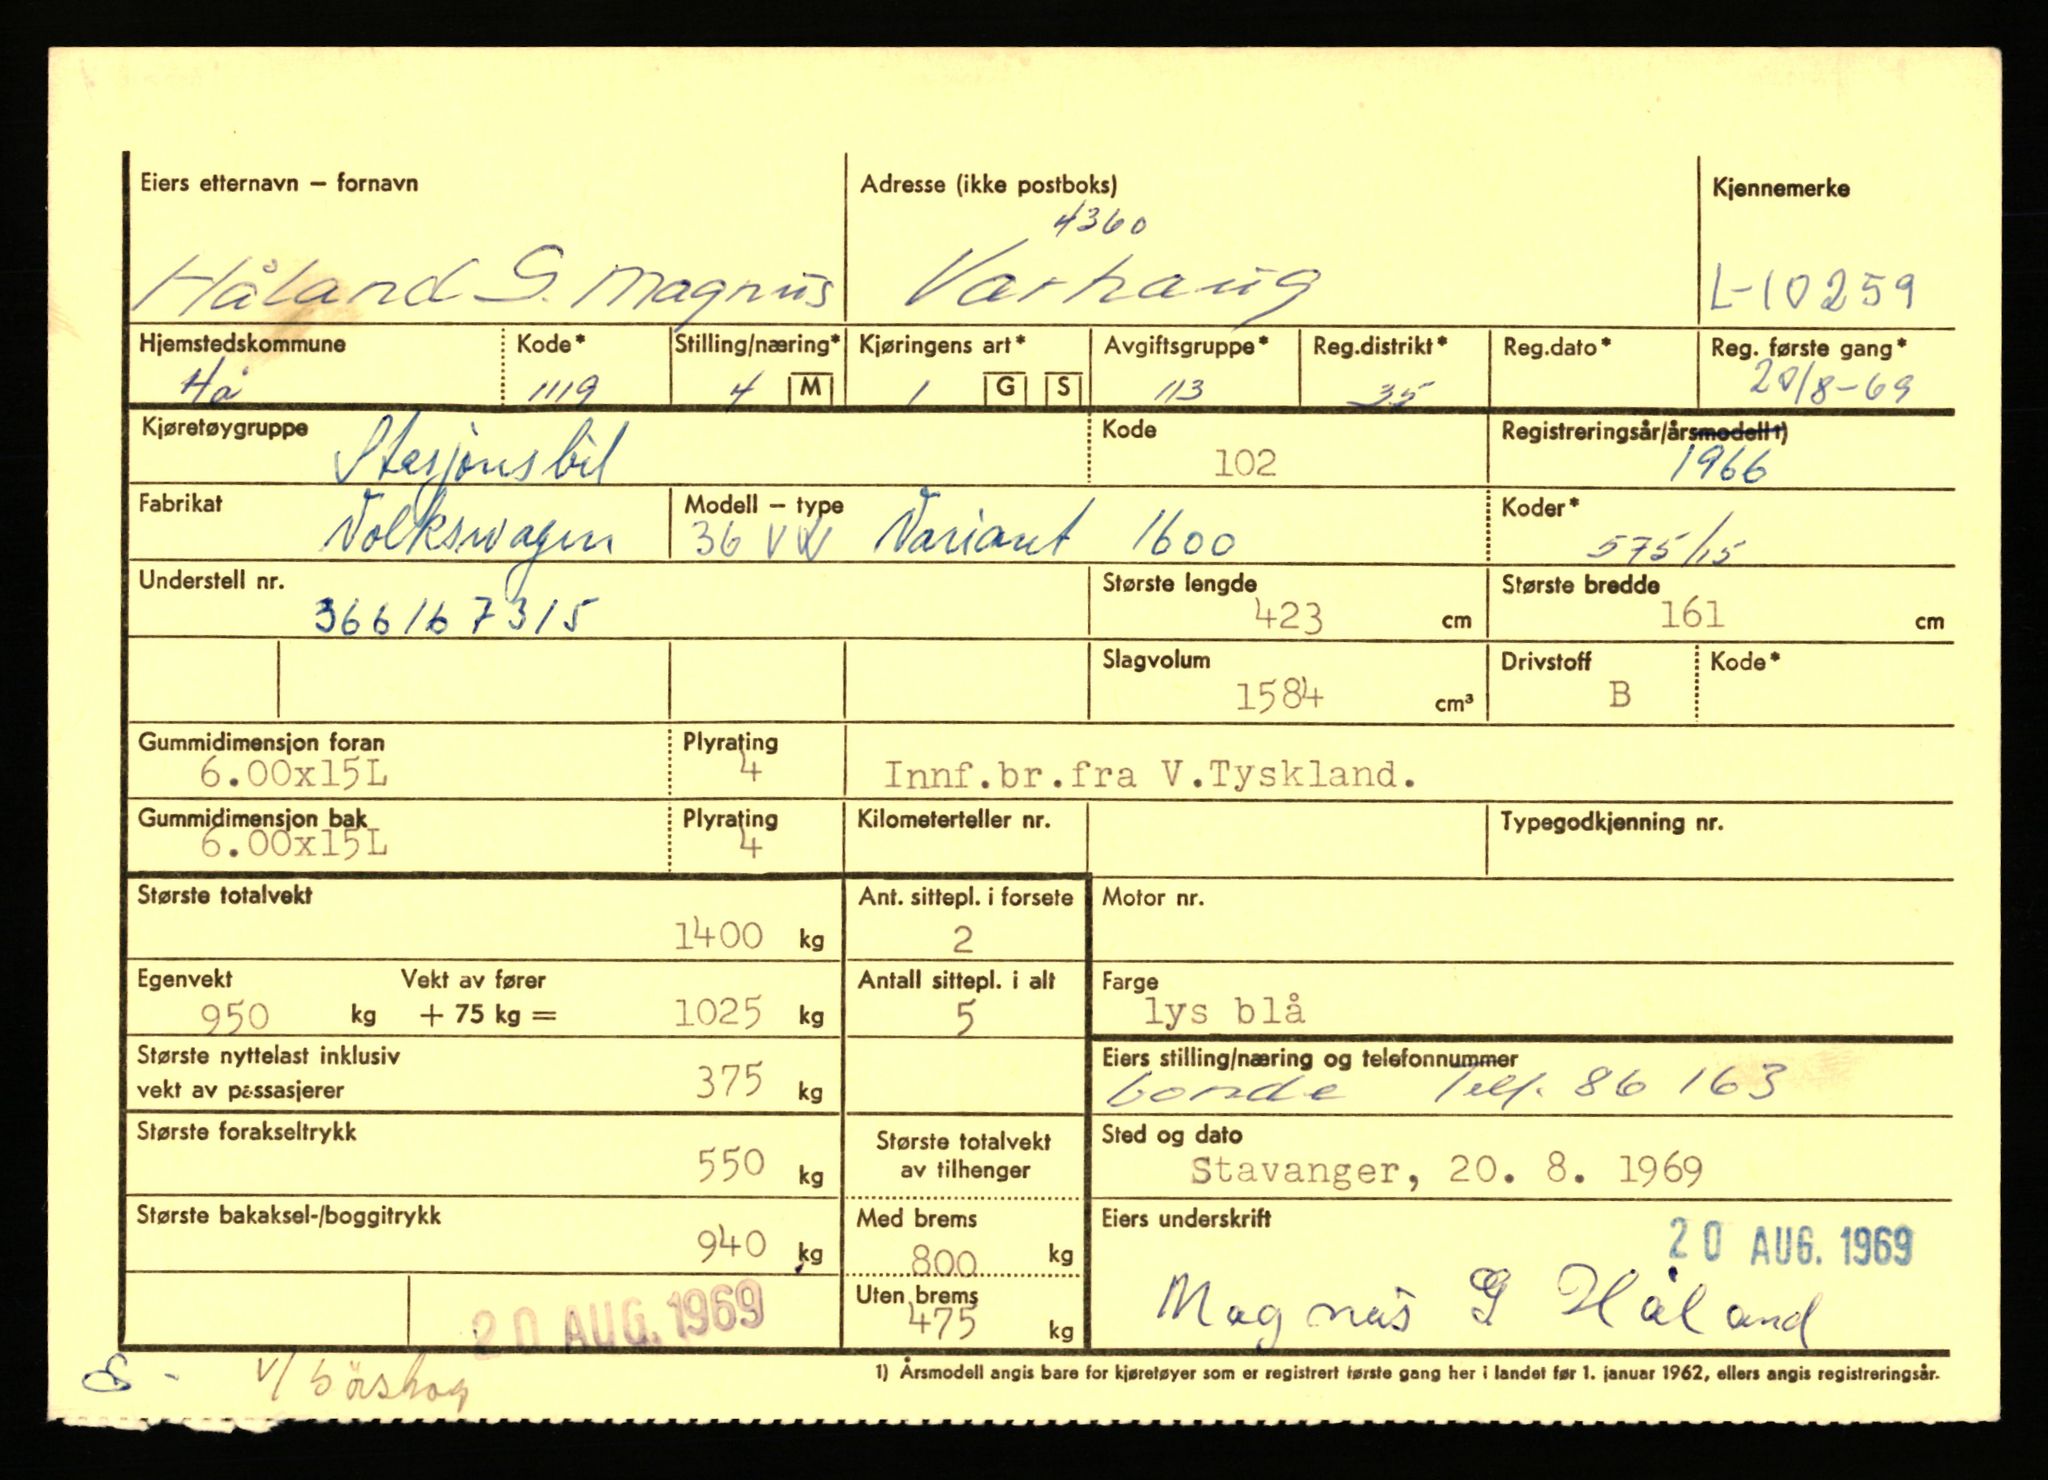 Eiers etternavn – fornavn Adresse (ikke postboks) Kjennemerke
4360
Håland S. Magnus Varhaug L-10259
Hjemstedskommune Kode* Stilling/næring* Kjøringens art* Avgiftsgruppe* Reg.distrikt* Reg.dato* Reg. første gang*
Hå 1119 4 M 1 G S 113 35 20/8-69
Kjøretøygruppe Kode Registreringsår/årsmodell1)
Stasjonsbil 102 1966
Fabrikat Modell – type Koder*
Volkswagen 36 VW Variant 1600 575/15
Understell nr. Største lengde Største bredde
366167315 423 cm 161 cm
Slagvolum Drivstoff Kode*
1584 cm³ B
Gummidimensjon foran Plyrating
6.00x15L 4 Innf.br.fra V.Tyskland.
Gummidimensjon bak Plyrating Kilometerteller nr. Typegodkjenning nr.
6.00x15L 4
Største totalvekt Ant. sittepl. i forsete Motor nr.
1400 kg 2
Egenvekt Vekt av fører Antall sittepl. i alt Farge
950 kg + 75 kg = 1025 kg 5 lys blå
Største nyttelast inklusiv Eiers stilling/næring og telefonnummer
vekt av passasjerer 375 kg bonde Telf. 86 163
Største forakseltrykk Største totalvekt Sted og dato
550 kg av tilhenger Stavanger, 20. 8. 1969
Største bakaksel-/boggitrykk Med brems Eiers underskrift
940 kg 800 kg 20 AUG. 1969
Uten brems
20 AUG. 1969 475 kg Magnus S Håland
1) Årsmodell angis bare for kjøretøyer som er registrert første gang her i landet før 1. januar 1962, ellers angis registreringsår.
v/